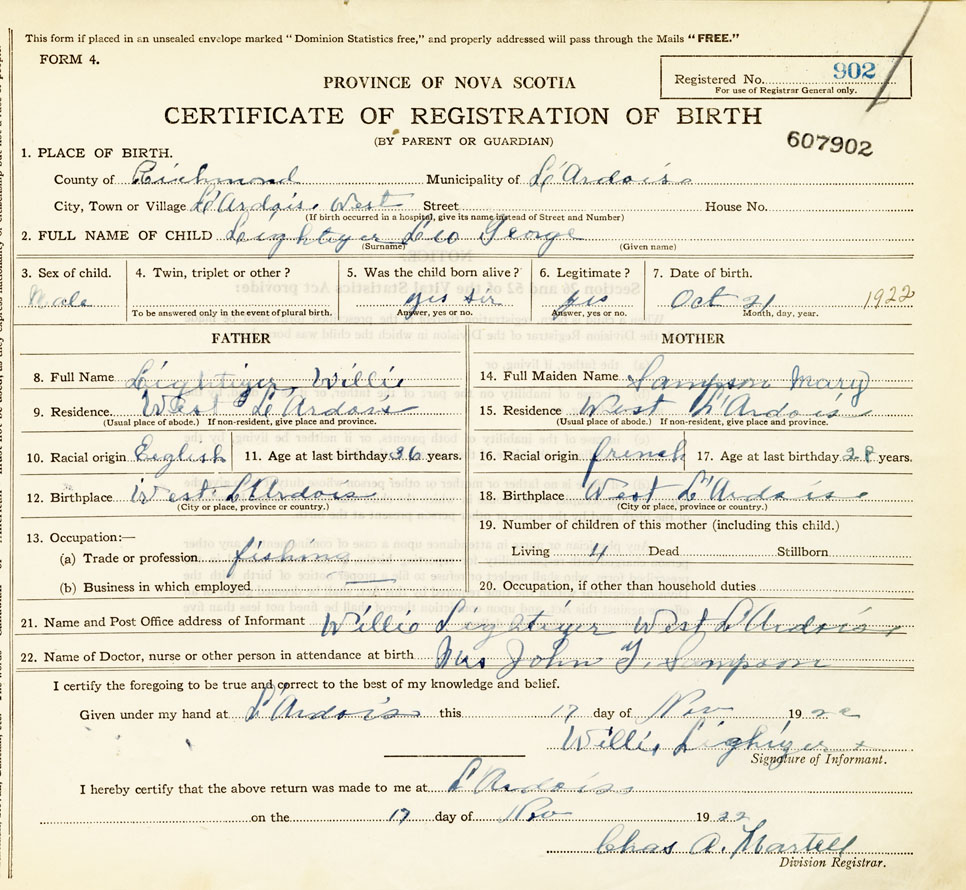 This form if placed in an unsealed envelope marked "Dominion Statistics free," and properly addressed will pass through the Mails "FREE."
FORM 4.
PROVINCE OF NOVA SCOTIA
Registered No. 902
For use of Registrar General only.
CERTIFICATE OF REGISTRATION OF BIRTH
(BY PARENT OR GUARDIAN)
607902
1. PLACE OF BIRTH.
County of Richmond Municipality of L'Ardois
City, Town or Village L'Ardois West Street House No.
(If birth occurred in a hospital, give its name instead of Street and Number)
2. FULL NAME OF CHILD Lightizer Leo George
(Surname) (Given name)
3. Sex of child. 4. Twin, triplet or other? 5. Was the child born alive? 6. Legitimate? 7. Date of birth.
Male yes sir yes Oct 21 1922
To be answered only in the event of plural birth. Answer, yes or no. Answer, yes or no. Month, day, year.
FATHER MOTHER
8. Full Name Lightizer Willie 14. Full Maiden Name Sampson Mary
9. Residence. West L'Ardois 15. Residence West L'Ardois
(Usual place of abode.) If non-resident, give place and province. (Usual place of abode.) If non-resident, give place and province.
10. Racial origin English 11. Age at last birthday 36 years. 16. Racial origin french 17. Age at last birthday 28 years.
12. Birthplace West L'Ardois 18. Birthplace West L'Ardois
(City or place, province or country.) (City or place, province or country.)
13. Occupation:— 19. Number of children of this mother (including this child.)
(a) Trade or profession fishing Living 4 Dead Stillborn
(b) Business in which employed — 20. Occupation, if other than household duties
21. Name and Post Office address of Informant Willie Lightizer West L'Ardois
22. Name of Doctor, nurse or other person in attendance at birth Mrs John T. Sampson
I certify the foregoing to be true and correct to the best of my knowledge and belief.
Given under my hand at L'Ardois this 17 day of Nov 1922
Willie Lighizer x
Signature of Informant.
I hereby certify that the above return was made to me at L'Ardois
on the 17 day of Nov 1922
Chas A. Martell
Division Registrar.